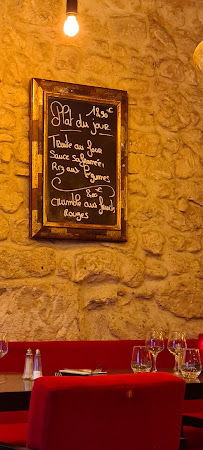 18,90€
Plat du jour
Truite au four
Sauce safranée,
Riz aux légumes
8,00
Crumble aux fruits
Rouges